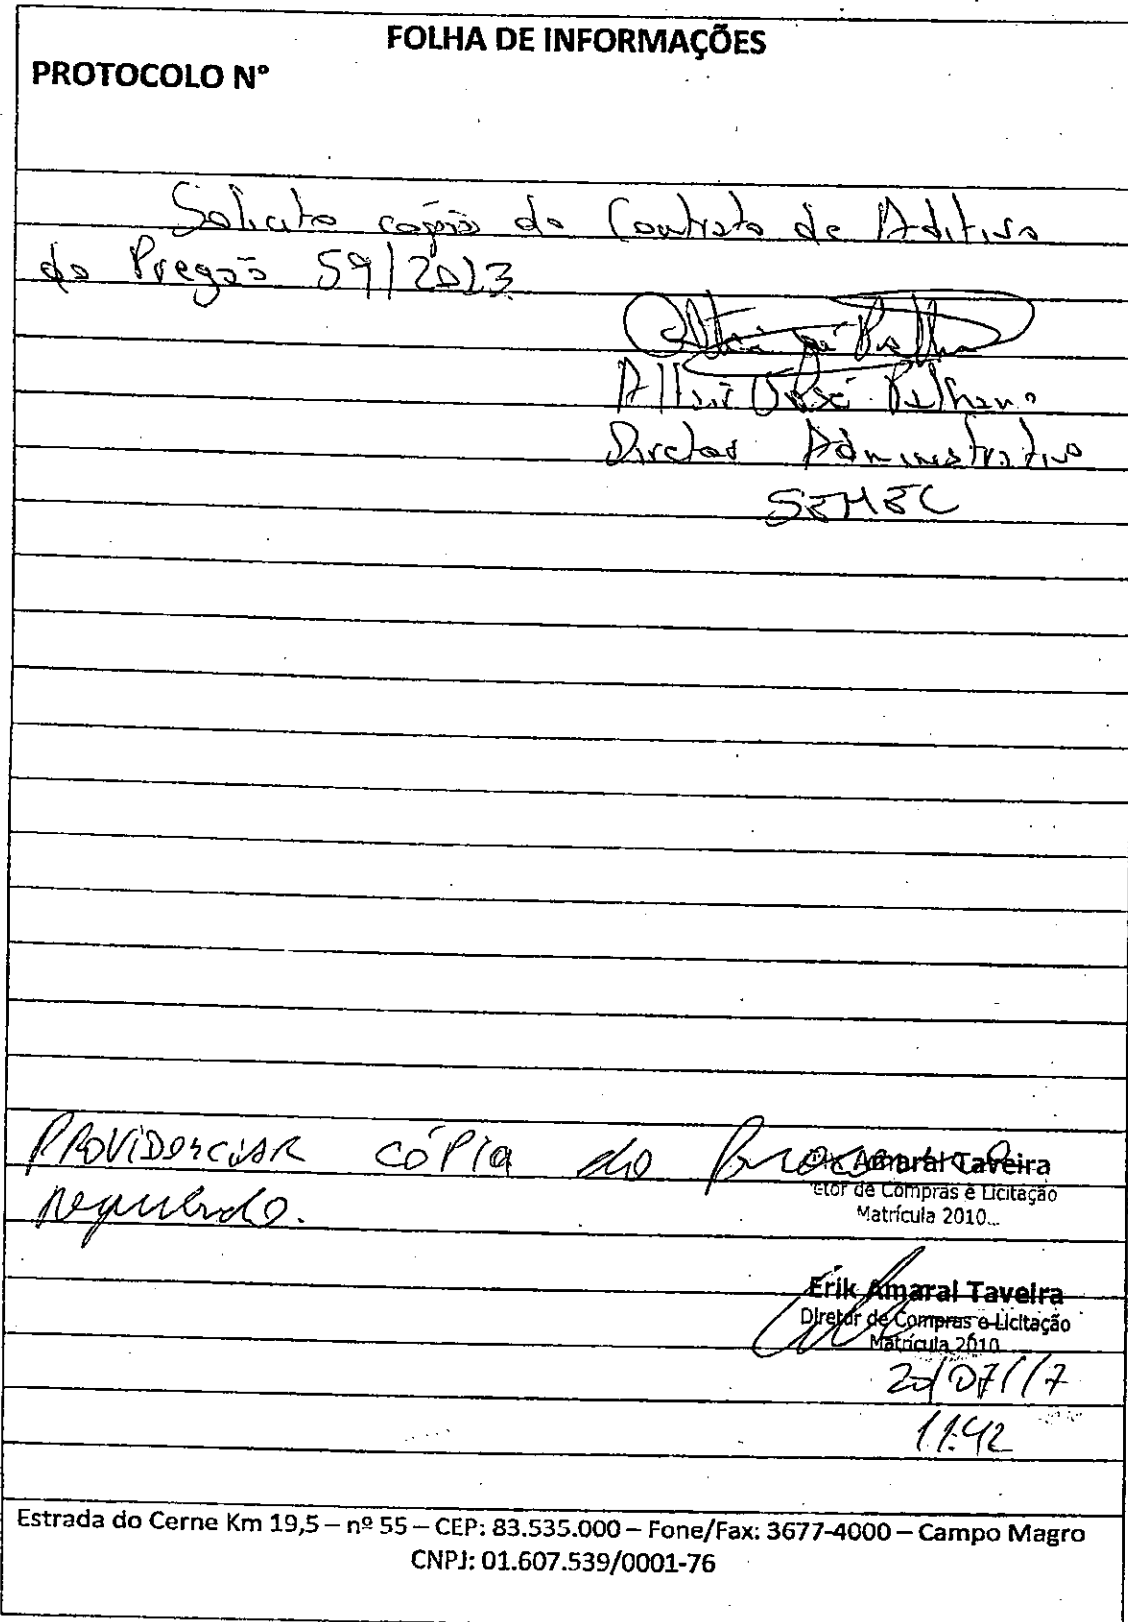 FOLHA DE INFORMAÇÕES
PROTOCOLO Nº
Solicito copia do Contrato de Aditivo
do Pregão 59/2013
José
Diretor Administrativo
SEMEC
PROVIDENCIAR CÓPIA do
Amaral Taveira
etor de Compras e Licitação
Matrícula 2010...
Erik Amaral Taveira
Diretor de Compras e Licitação
Matrícula 2010
20/07/17
11:42
Estrada do Cerne Km 19,5 – nº 55 – CEP: 83.535.000 – Fone/Fax: 3677-4000 – Campo Magro
CNPJ: 01.607.539/0001-76